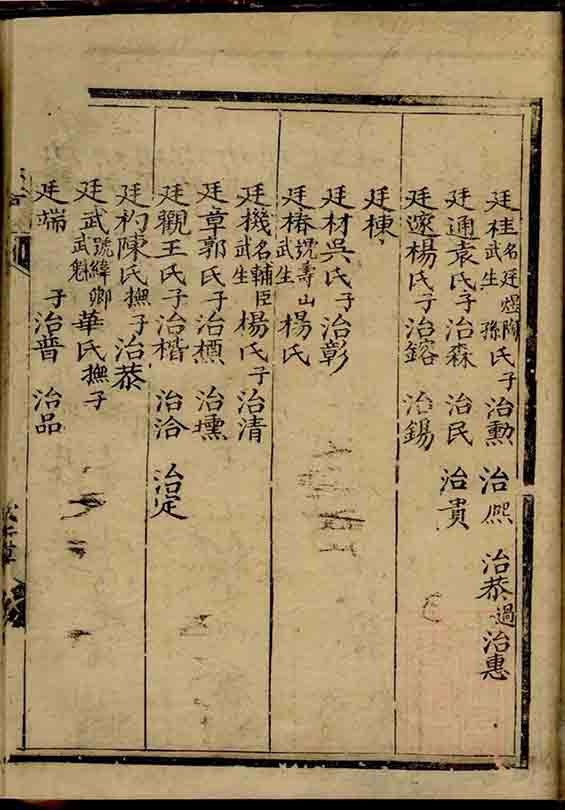 廷桂名廷煜武生陶孫氏子治勳　治熙　治恭過治惠
廷通袁氏子治森　治民　治貫
廷邃楊氏子治鎔　治錫
廷棟
廷材吳氏子治彰
廷椿號壽山武生楊氏
廷機名輔臣武生楊氏子治清
廷章郭氏子治標　治壎
廷觀王氏子治楷　治洽　治定
廷杓陳氏撫子治恭
廷武號緯卿武魁華氏撫子
廷端　子治普　治品